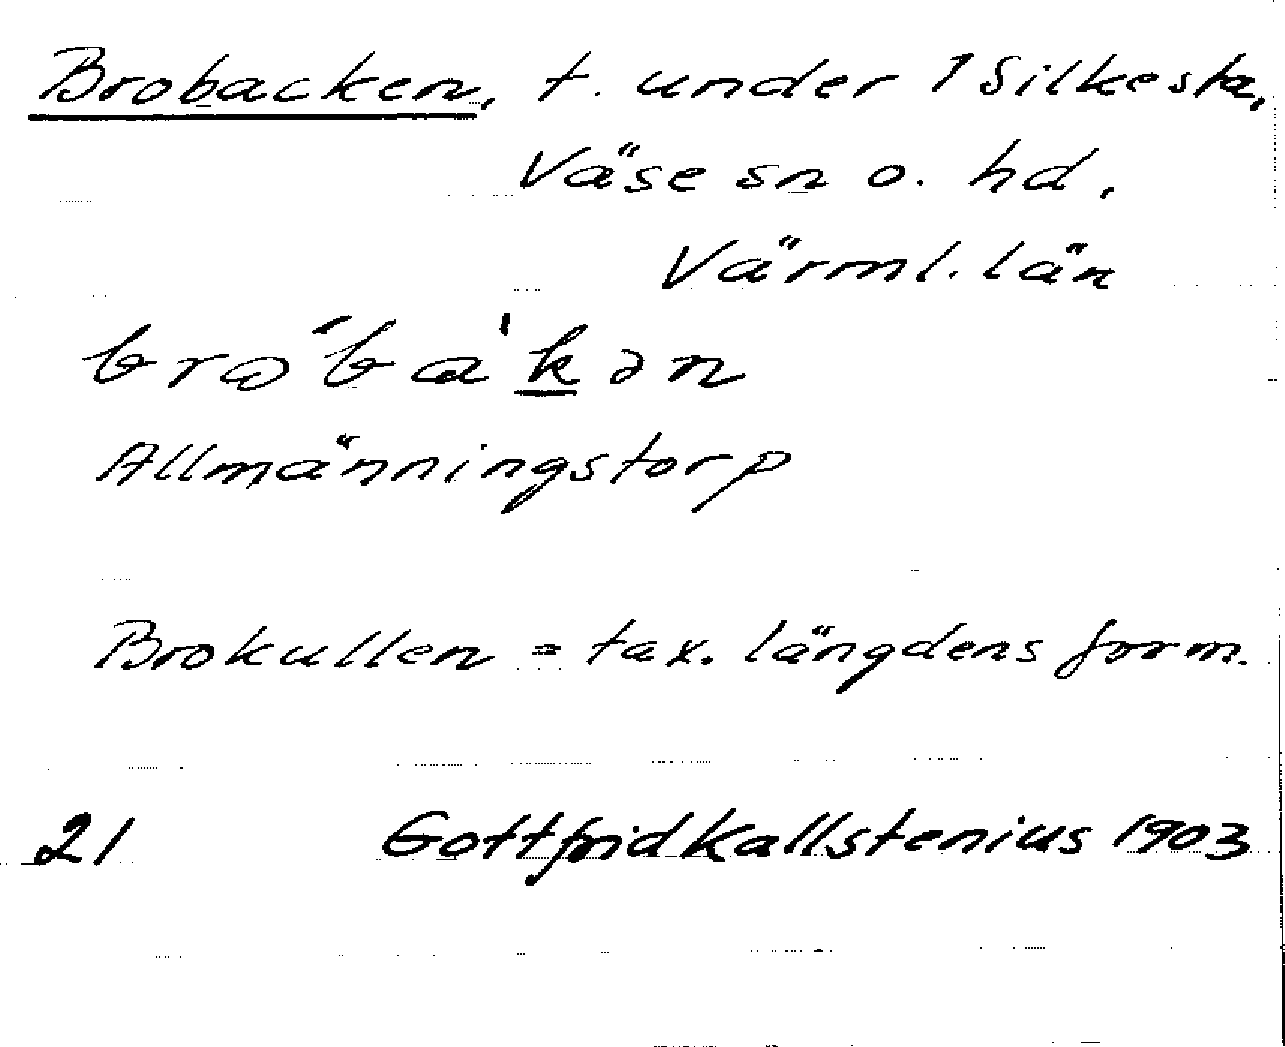 Brobacken, t. under 1 Silkesta,
Väse sn o. hd,
Värml. län
Allmänningstorp
Brokullen = tax. längdens form.
21 Gottfrid Kallstenius 1903